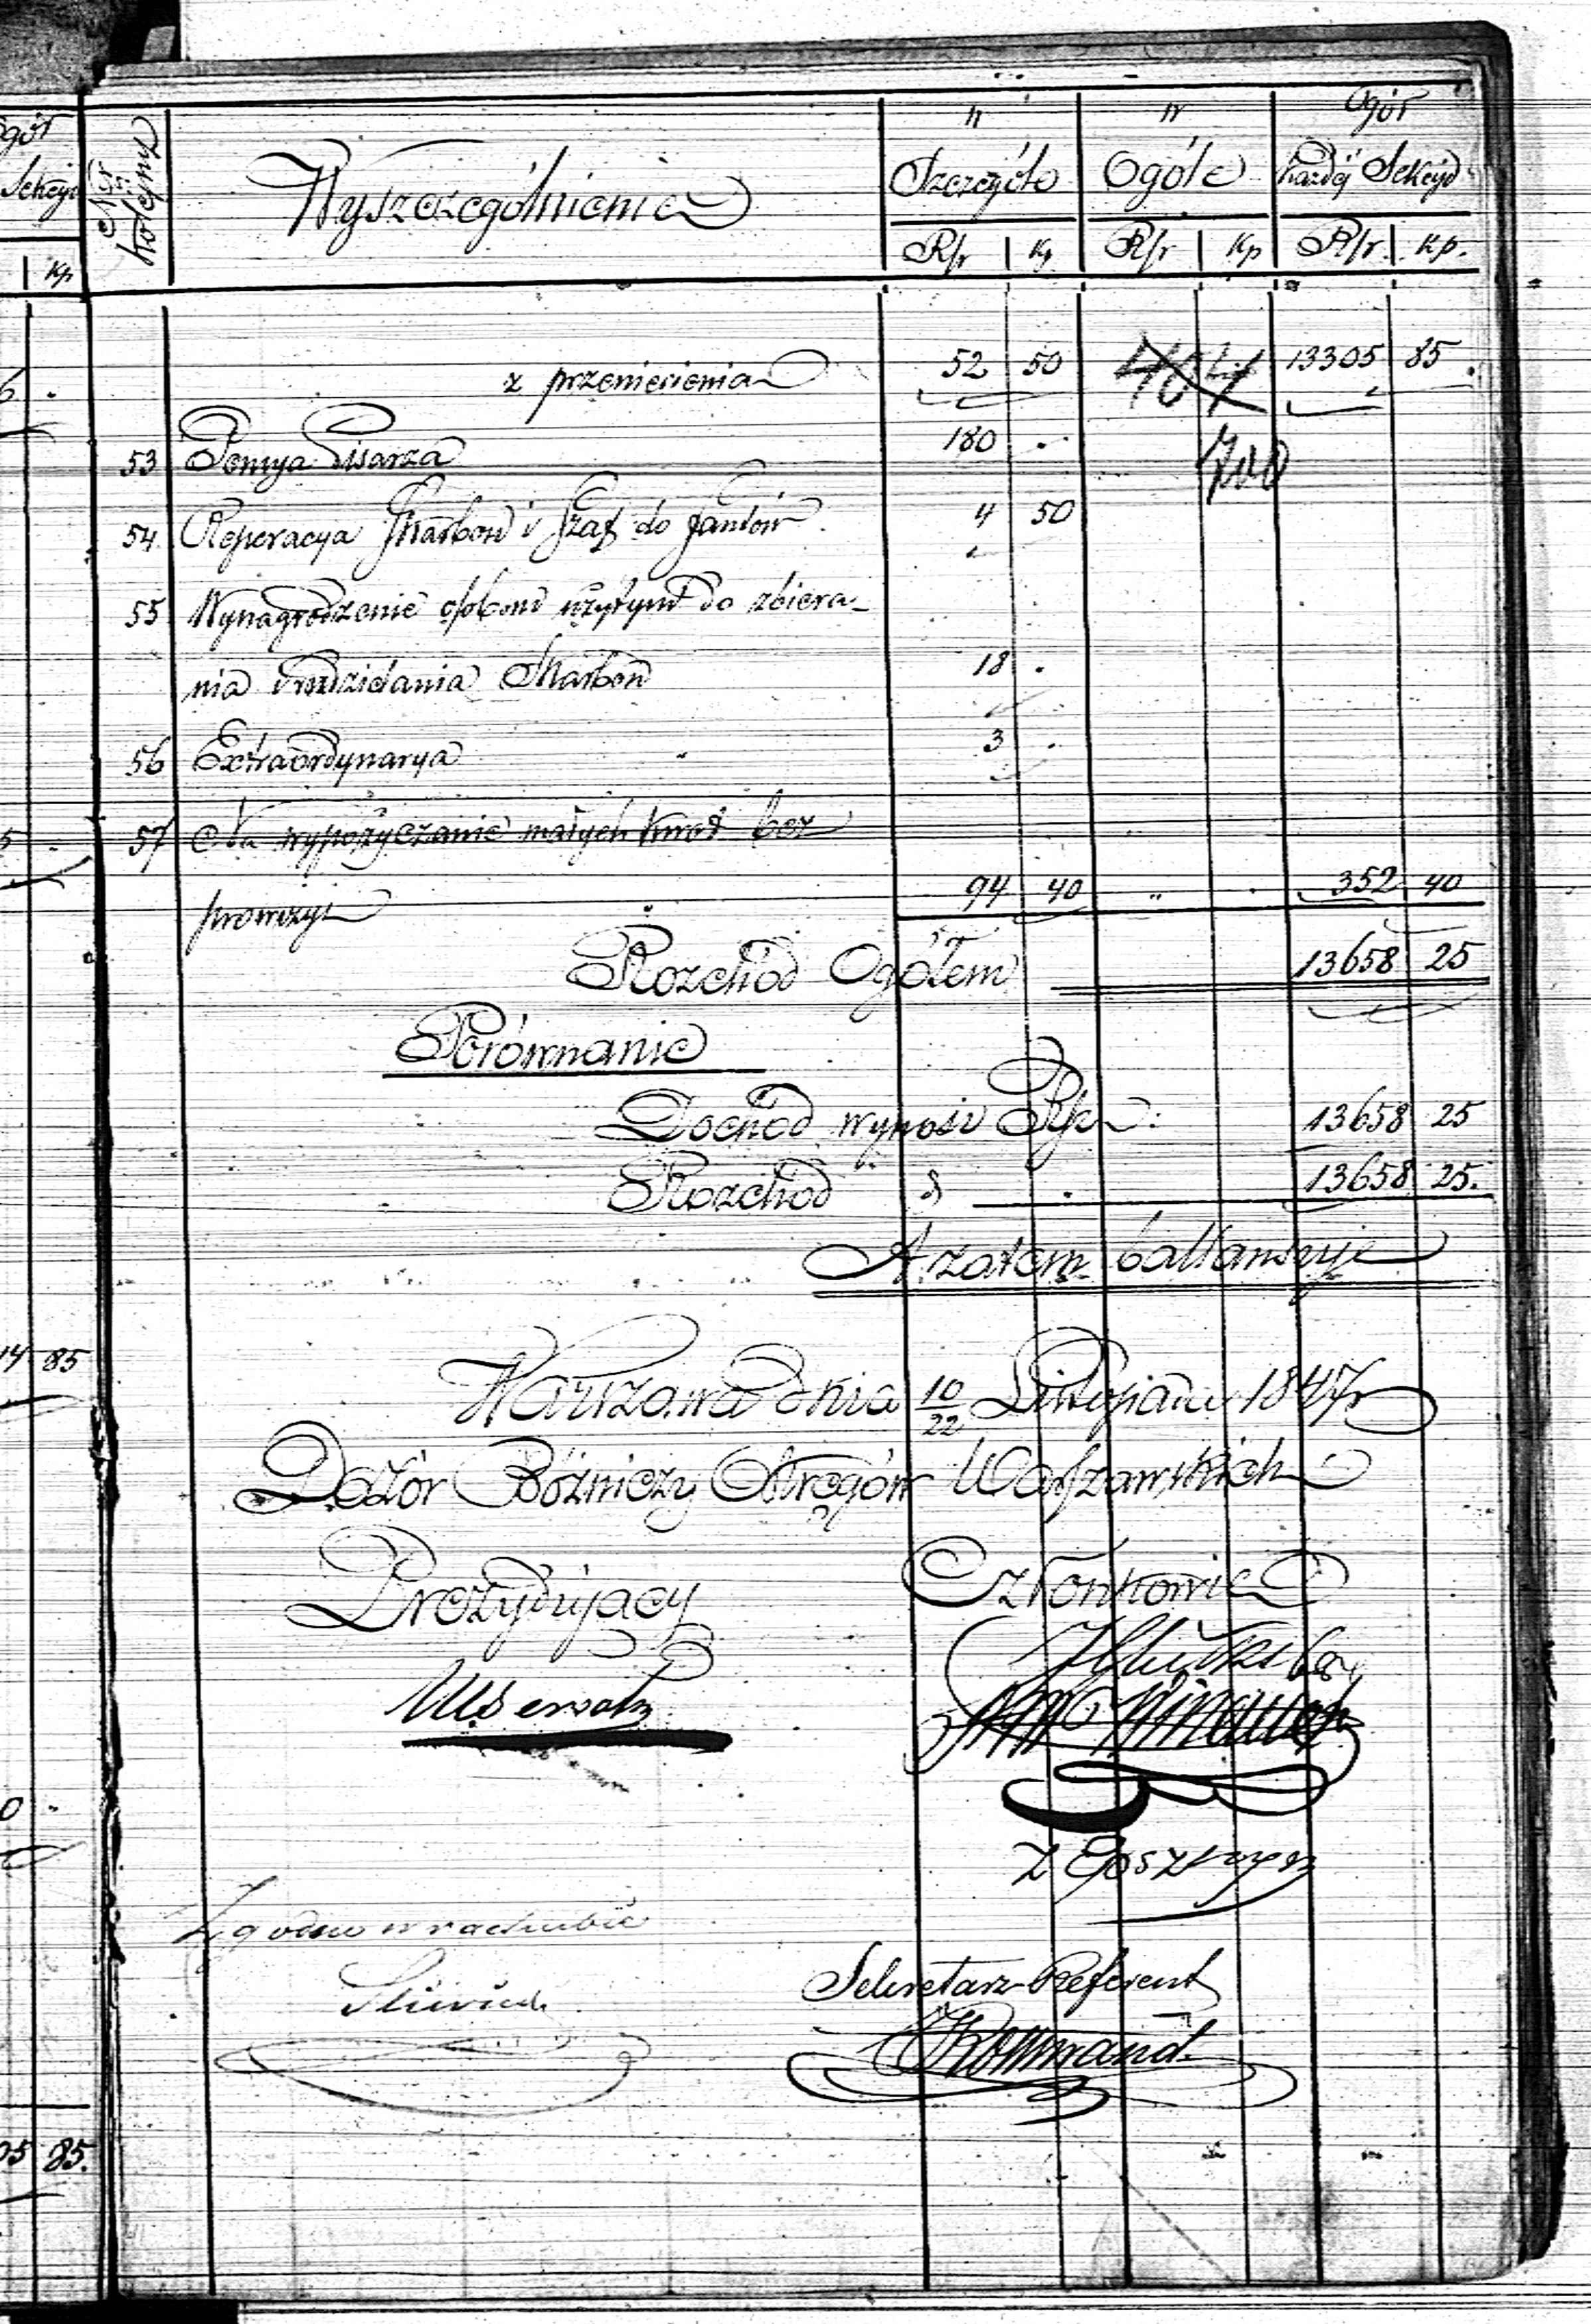 gół
Sekcyi
kp
Ner kolejny
Wyszczególnienie
w Szczególe
w Ogóle
Ogół każdéj Sekcyi
Rsr kp Rsr kp Rsr kp.
z przeniesienia 52 50 404 13305 85
53 Pensya Pisarza 180 . 700
54 Reperacya Skarbon i Szaf do fantów. 4 50
55 Wynagrodzenie osobom użytym do zbiera-
nia i rozdzielania Skarbon 18 .
56 Extraordynarya 3 .
57 Na wypożyczanie małych kwot bez
prowizyi 94 40 " . 352 40
Rozchód Ogółem 13658 25
Porównanie
Dochód wynosi Rsr: 13658 25
Rozchód 13658 25.
A zatem ballansuje
14 85
Warszawa dnia 10/22 Listopada 1847r
Dozór Bóżniczy Okręgów Warszawskich
Prezydujący Członkowie
Zgodne w rachubie
Sekretarz Referent
05 85.